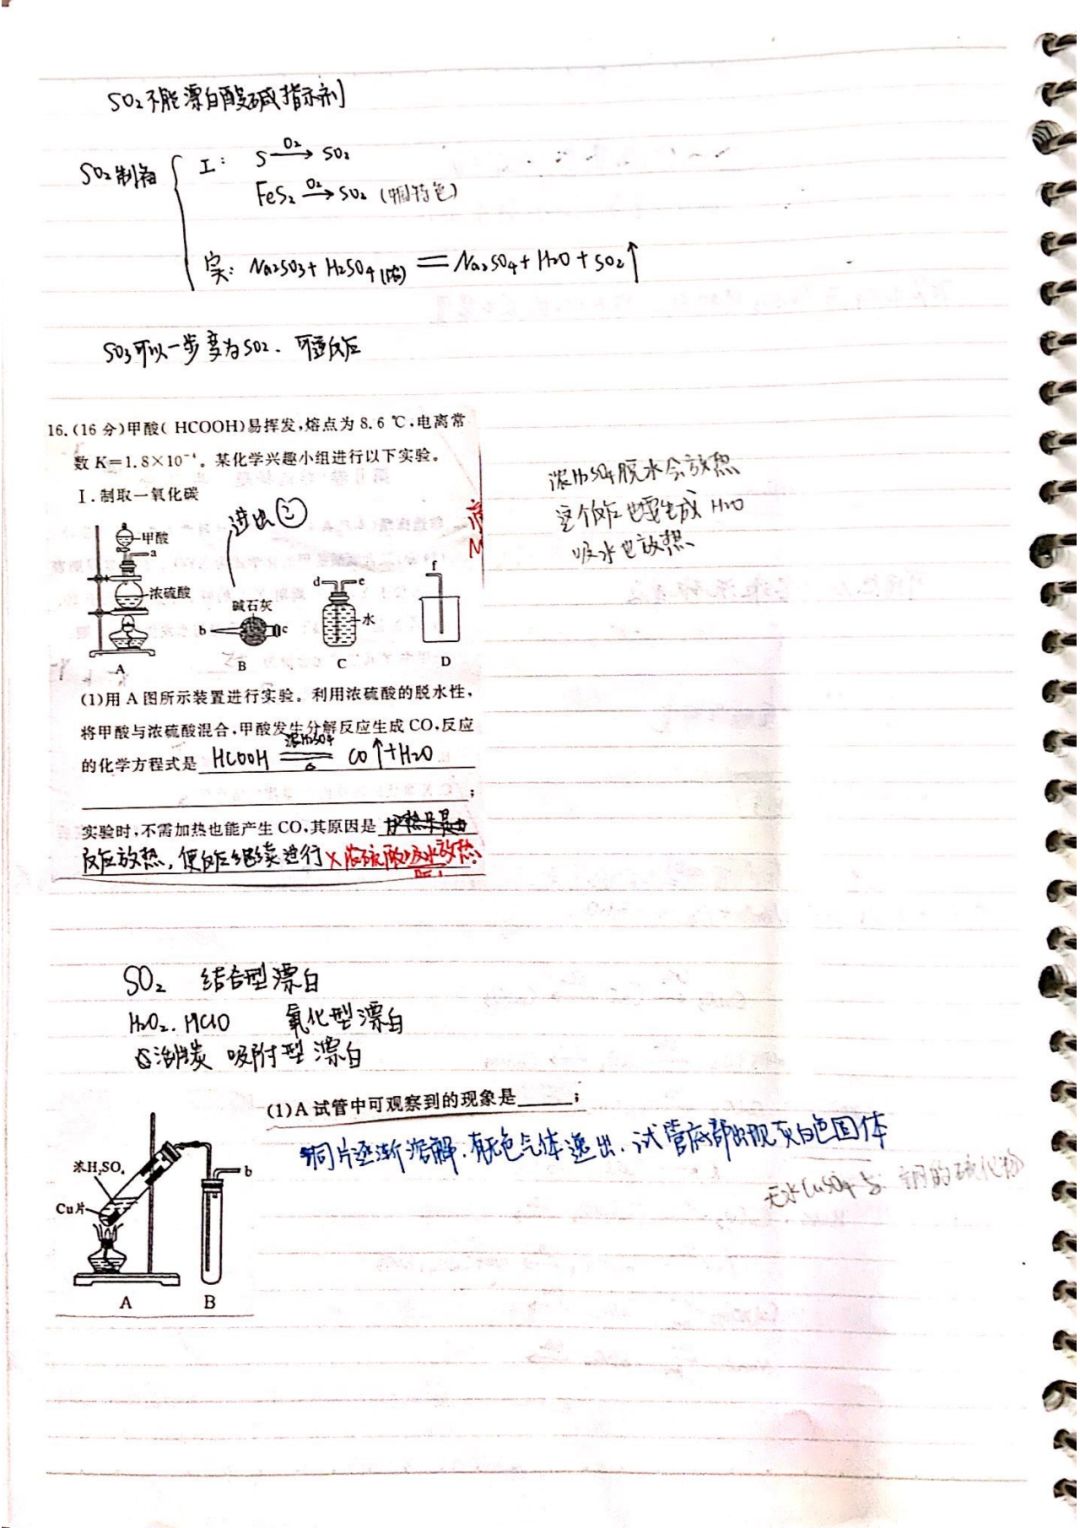 SO₂不能漂白酸碱指示剂
SO₂制备
工: S —O₂→ SO₂
FeS₂ —O₂→ SO₂
实: Na₂SO₃ + H₂SO₄(浓) = Na₂SO₄ + H₂O + SO₂↑
SO₃可以一步变为SO₂、可逆反应
16.(16分)甲酸( HCOOH)易挥发,熔点为8.6 ℃,电离常
数K=1.8×10⁻⁴。某化学兴趣小组进行以下实验。
Ⅰ.制取一氧化碳
进出
甲酸
a
浓硫酸
A
碱石灰
b
c
B
d
e
水
C
f
D
浓H₂SO₄脱水会放热
这个反应也要生成H₂O
吸水也放热
(1)用A图所示装置进行实验。利用浓硫酸的脱水性,
将甲酸与浓硫酸混合,甲酸发生分解反应生成CO,反应
的化学方程式是 HCOOH =浓H₂SO₄/△= CO↑+H₂O
;
实验时,不需加热也能产生CO,其原因是
反应放热,使反应继续进行 ×浓硫酸吸水放热
SO₂ 结合型漂白
H₂O₂.HClO 氧化型漂白
活性炭 吸附型漂白
(1)A试管中可观察到的现象是____;
铜片逐渐溶解.有无色气体逸出.试管底部出现灰白色固体
无水CuSO₄与 铜的硫化物
浓H₂SO₄
Cu片
b
A
B